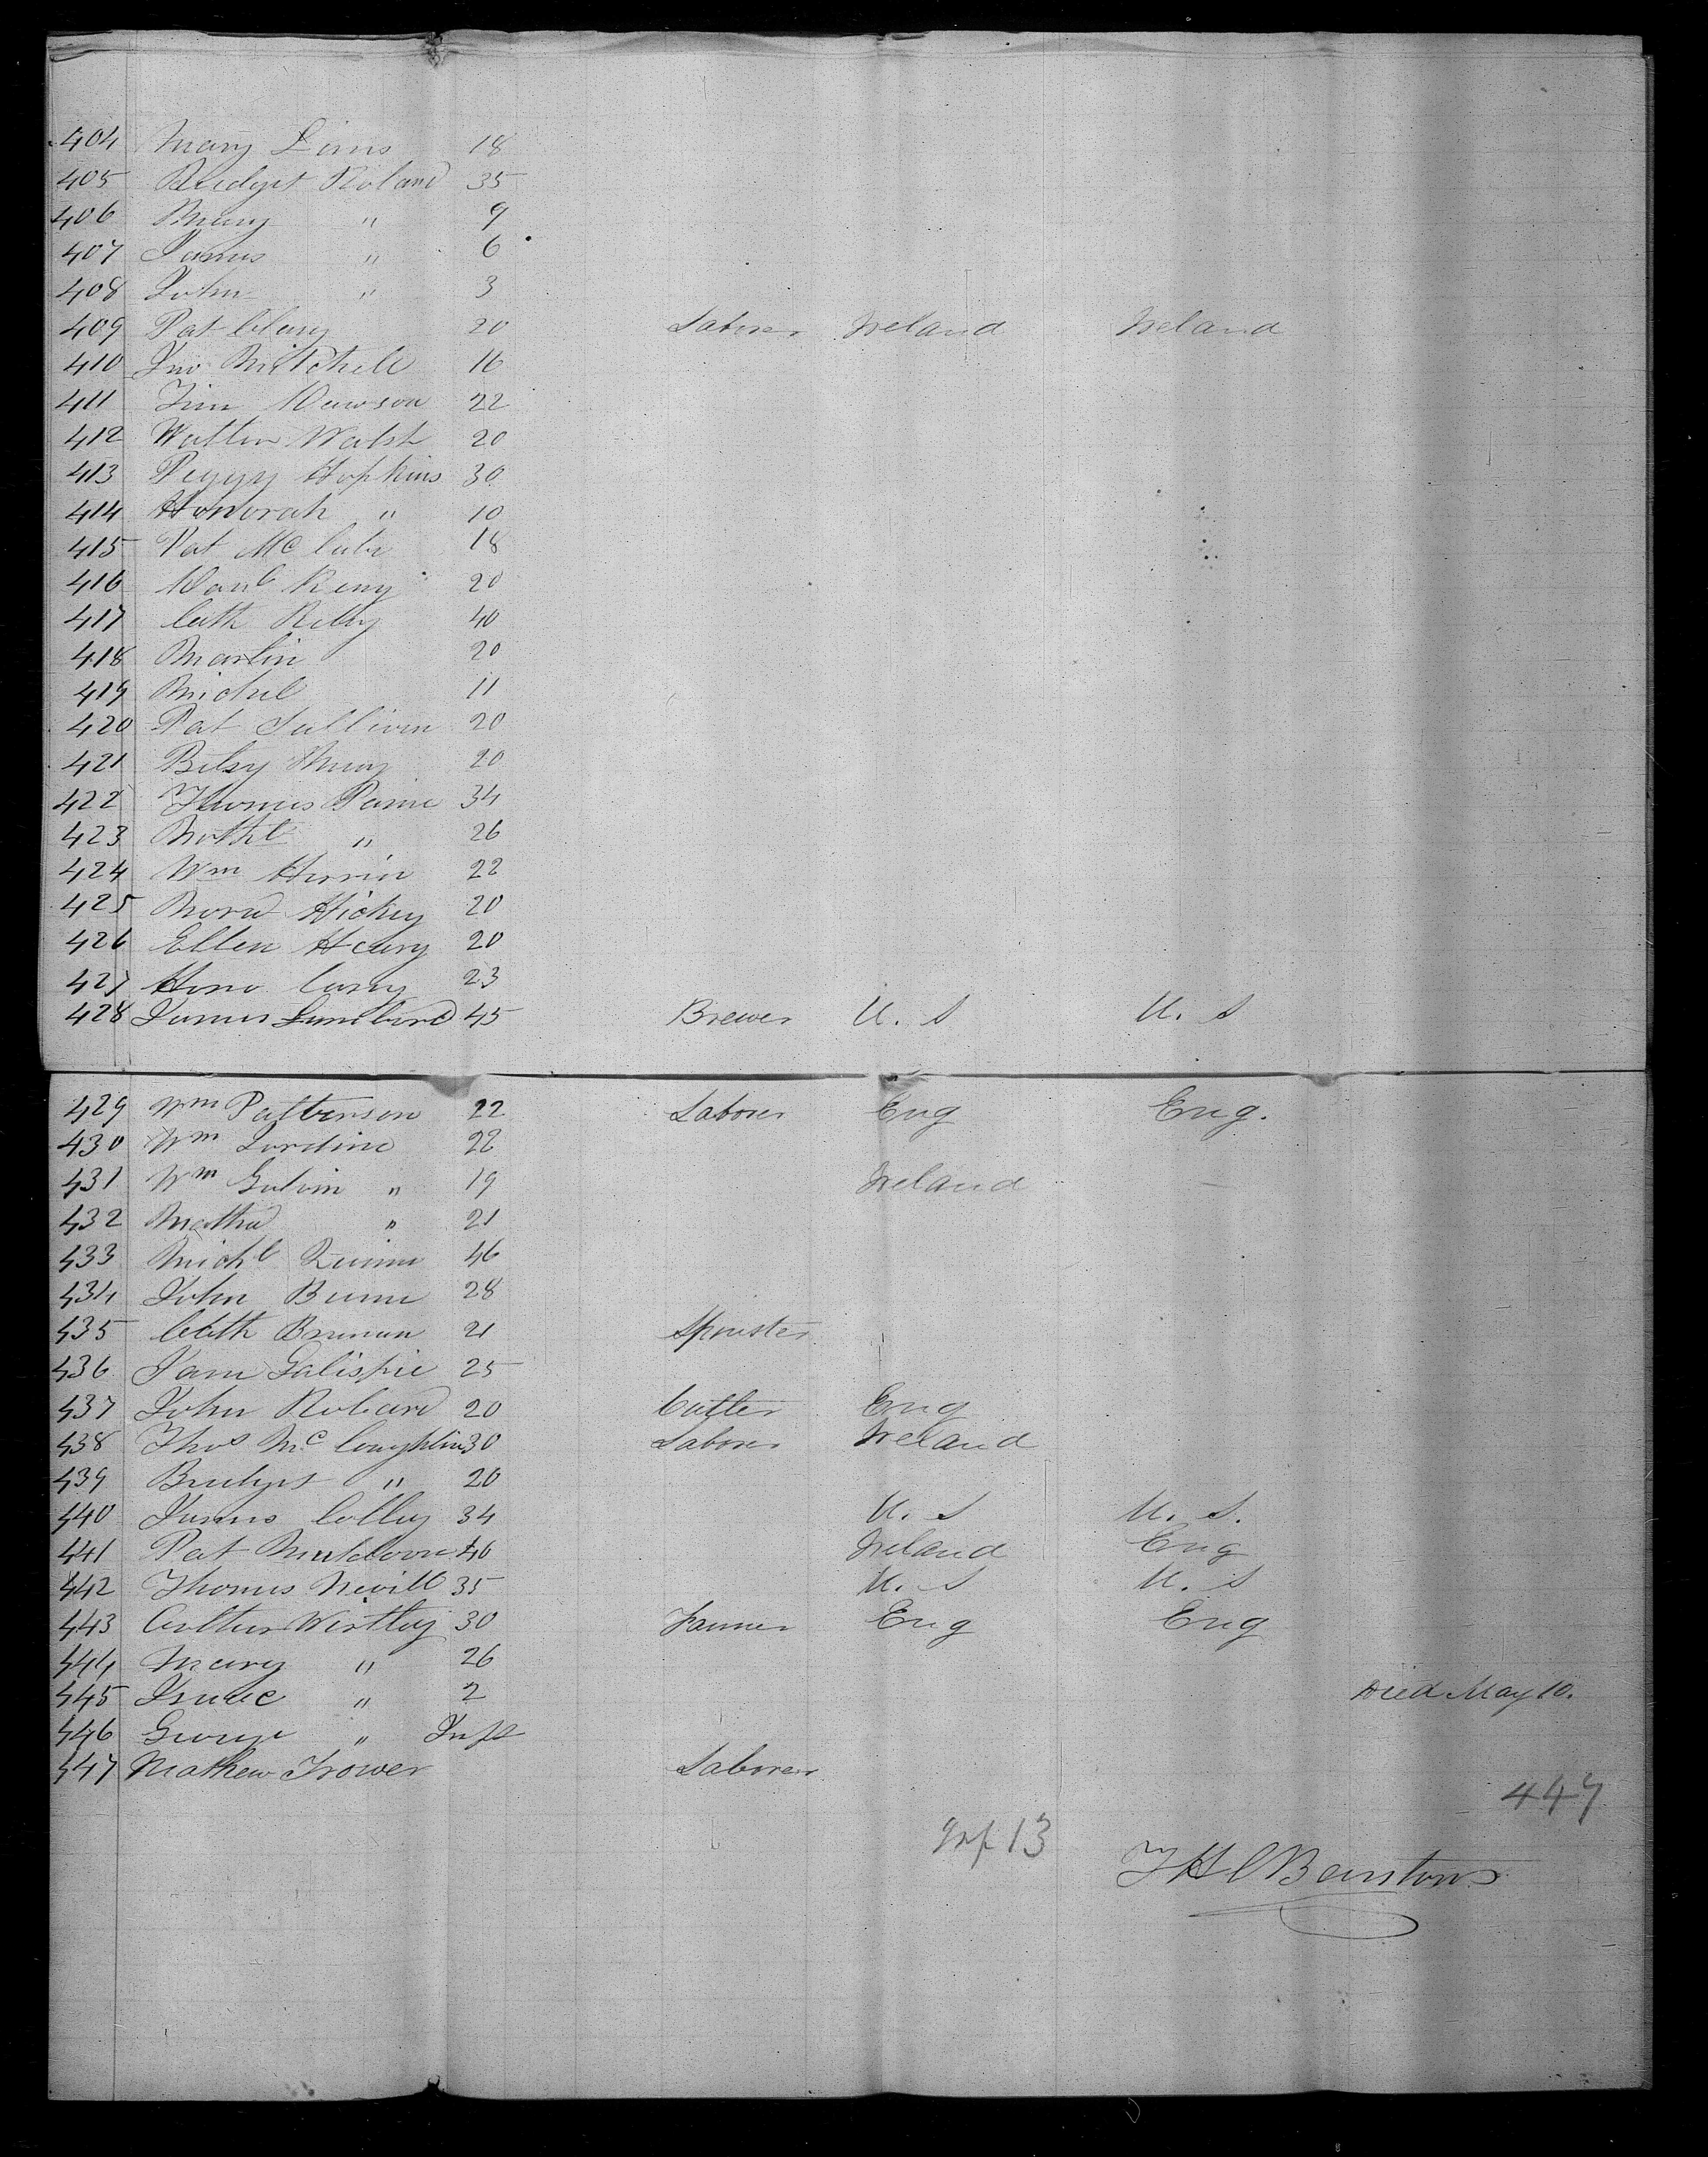 404 Mary Lims 18
405 Bridget Noland 35
406 Mary " 9
407 James " 6
408 John " 3
409 Pat Clury 20 Laborer Ireland Ireland
410 Jno Mitchell 16
411 Jim Dawson 22
412 Walter Walsh 20
413 Peggy Hopkins 30
414 Honorah " 10
415 Pat McCabe 18
416 Danl Reny 20
417 Cath Reily 40
418 Martin 20
419 Michel 11
420 Pat Sullivan 20
421 Betsy 20
422 Thomas Paine 34
423 " 26
424 Wm Herrin 22
425 Nora Hickey 20
426 Ellen Henry 20
427 Hono Cary 23
428 James 45 Brewer U. S U. S
429 Wm Patterson 22 Laborer Eng Eng.
430 Wm Lordine 22
431 Wm Galvin " 19 Ireland
432 " 21
433 Michl Quinn 46
434 John Burne 28
435 Cath Brenan 21 Spinster
436 Jam Galispie 25
437 John Robard 20 Cutter Eng
438 Thos McCoughlin 30 Laborer Ireland
439 Bridget " 20
440 James Colley 34 U. S U. S.
441 Pat Muldoon 40 Ireland Eng
442 Thomas Nevill 35 U. S U. S
443 Westley 30 Farmer Eng Eng
444 Mary " 26
445 Isaac " 2 Died May 10.
446 George " Inft
447 Mathew Trower Laborer
447
Inf 13